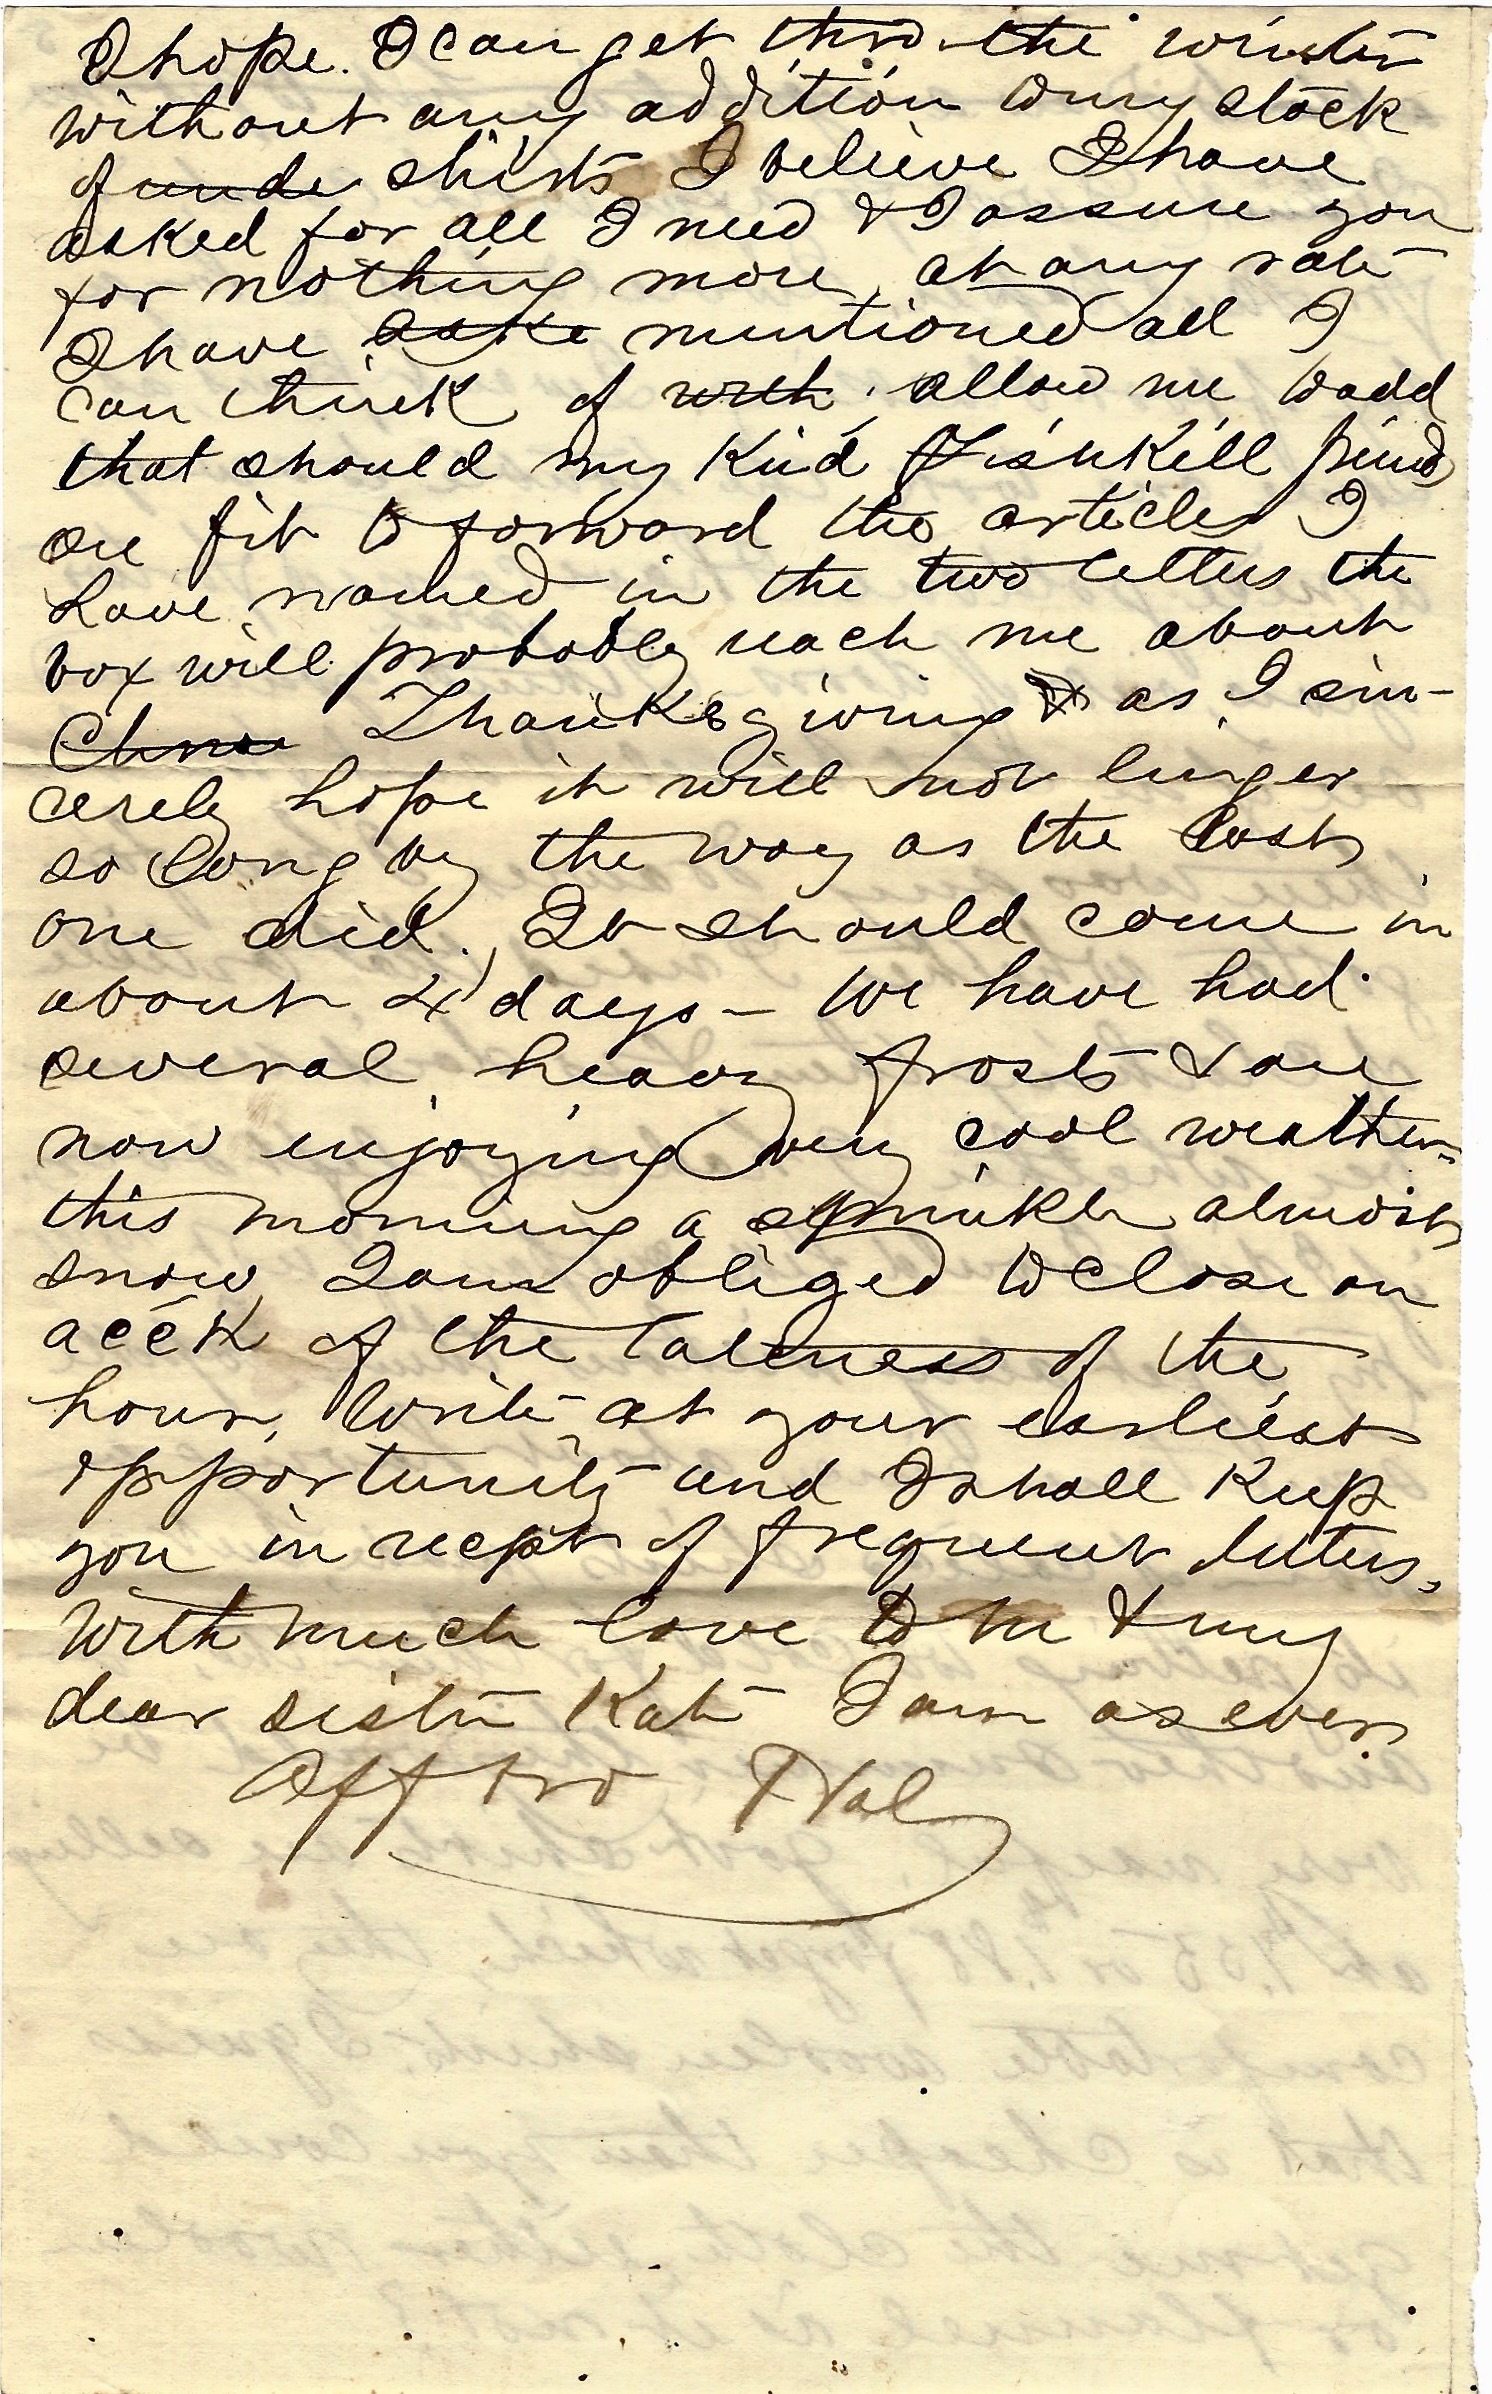 I hope. I can get thro the winter
without any addition to my stock
of unde shirts I believe I have
asked for all I need & I assure you
for nothing more, at any rate
I have aske mentioned all I
can think of with. allow me to add
that should my kind Fishkill friends
see fit to forward the articles I
have named in the two letters the
box will probably reach me about
Chris Thanksgiving & as I sin-
cerely hope it will not linger
so long by the way as the last
one did., It should come in
about 4 days – We have had
several heavy frosts & are
now enjoying very cool weather–
this morning a sprinkle almost
snow, I am obliged to close on
acct of the lateness of the
hour, Write at your earliest
opportunity and I shall keep
you in recpt of frequent letters,
With much love to M & my
dear sister Kate I am as ever
Aff bro Hal